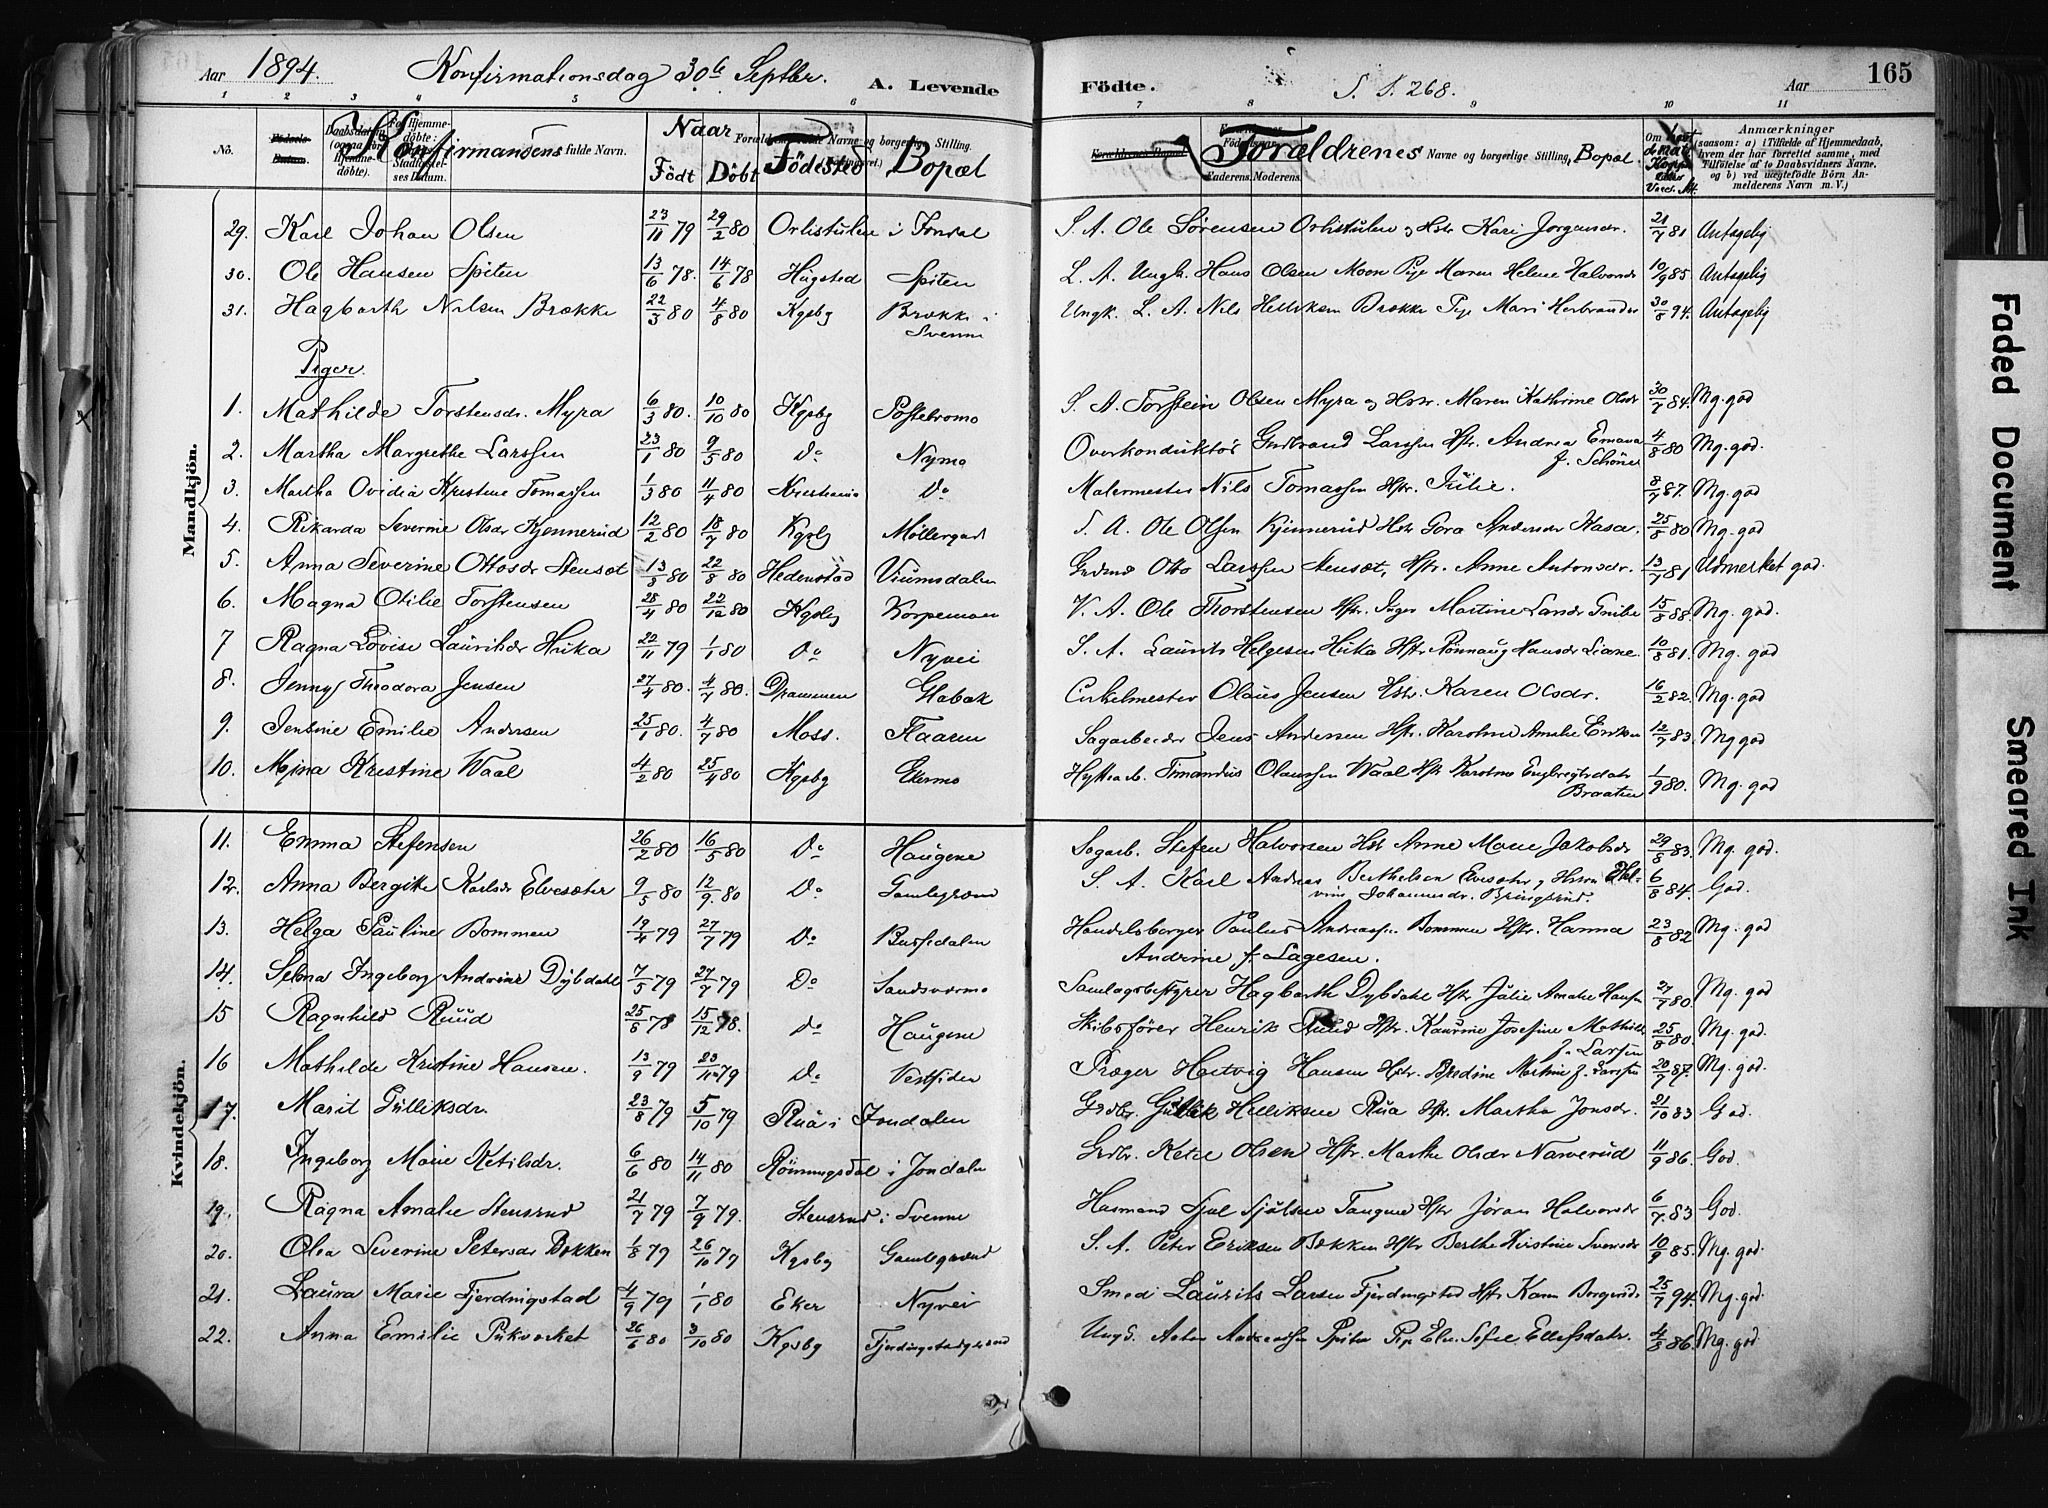 Aar 1894. Konfirmationsdag 30te Septbr. A. Levende Födte. S. S. 268. Aar 165
1 2 3 4 5 6 7 8 9 10 11
No. Konfirmandens fulde Navn. Naar Födt Döbt Födested Bopæl Forældrenes Navne og borgerlige Stilling, Bopæl. Anmærkninger
(saasom: a) i Tilfælde af Hjemmedaab, hvem der har forrettet samme, med Tilföielse af to Daabsvidners Navne. og b) ved uegtefödte Börn Anmelderens Navn m. V.)
Mandkjön.
29. Karl Johan Olsen 23/11 79 29/2 80 Orlistulen i Jondal S. A. Ole Sörensen Orlistulen og Hstr Kari Jorgensdr. 21/7 81 Antagelig
30. Ole Hansen Spiten 13/6 78. 14/6 78 Hügsted Spiten L. A. Ungk. Hans Olsen Moen Pige Maren Helene Halvorsdr 10/9 85 Antagelig
31. Hagbarth Nilsen Brække 22/3 80 4/8 80 Kgsby Brække i Ungk. L. A. Nils Helliksen Brække Pige Mari Herbrandsdr 30/8 94. Antagelig
Svenne
Piger.
1. Mathilde Torstensdr. Myra 6/3 80. 10/10 80 Kgsby Postebromo S. A. Torstein Olsen Myra og Hstr. Maren Kathrine Olsdr 30/7 84. Mg. god
2. Martha Margrethe Larssen 23/1 80 9/5 80 Do Nymo Overkonduktör Gudbrand Larssen Hstr. Andrea Emava 4/8 80 Mg. god.
f. Schöner
3. Martha Ovidia Kristine Tomassen 1/3 80 11/4 80 Kristiania Do Malermester Nils Tomassen Hstr. Jülie. 8/7 87. Mg. god
4. Rikarda Severine Olsdr Kjennerud 12/2 80 18/7 80 Kgsby Möllergad S. A. Ole Olsen Kjennerud Hstr Gora Andersdr Hasa. 25/8 80 Mg. god
5. Anna Severine Ottosdr Stensæt 13/3 80 22/8 80 Hedenstad Viumsdalen Grdmd Otto Larssen Stensæt, Hstr. Anne Antonsdr. 13/7 81 Udmerket god.
6. Magna Otilie Torstensen 28/4 80 22/12 80 Kgsby Korpemoen V. A. Ole Thorstensen Hstr. Inger Martine Larsdr Gribe 15/8 88. Mg. god.
7 Ragna Lovise Lauritsdr Huka 22/11 79 1/1 80 Do Nyvei S. A. Laurits Helgesen Huka Hstr Rönnaug Hansdr Liane. 10/8 81. Mg. god
8. Jenny Theodora Jensen 27/4 80. 4/7 80. Drammen Glabak Cirkelmester Olaus Jensen Hstr. Karen Olsdr. 16/2 82. Mg. god
9. Jensine Emilie Andersen 25/1 80. 4/7 80 Moss. Flaaren Sagarbeider Jens Andersen Hstr. Karoline Amalie Eriksen 12/7 83. Mg god
10. Mina Kristine Waal 4/2 80 25/4 80 Kgsby Ekermo Hyttearb. Timandus Olaussen Waal Hstr Karoline Engbregtsdatr 1/9 80. Mg. god
Braaten
Kvindekjön.
11. Emma Stefensen 26/2 80 16/5 80 Do Haugene Sagarb. Stefen Halvorsen Hstr Anne Marie Jakobsdr 29/8 83. Mg. god.
12. Anna Bergitte Karlsdr Elvesæter 9/5 80 12/9. 80 Do Gamlegrænd S. A. Karl Andreas Berthelsen Elvesæter, Hstr 6/8 84. God.
Johannesdr. Bringsrud.
13. Helga Pauline Bommen 19/4 79 27/7 79 Do Bussedalen Handelsborger Paulus Andreassen Bommen Hstr. Hanna 23/8 82 Mg. god
Andrine f. Lagesen.
14. Selma Ingeborg Andrine Dybdahl 7/5 79 27/7 79 Do Sandsværmo Samlagsbestyrer Hagbarth Dybdahl Hstr Julie Amalie Hansen 27/7 80. Mg. god
15 Ragnhild Ruud 25/8 78 15/12 78. Do Haugene Skibsförer Henrik Ruud Hstr. Kaurine Josefine Mathilde 25/8 80 Mg. god.
f. Larsen
16 Mathilde Kristine Hansen. 13/9 79 23/11 79 Do Vestsiden Præger Hartvig Hansen Hstr. Bredine Martine f. Larsen 20/7 87. Mg. god.
17. Marit Gulliksdr. 23/8 79 5/10 79 Rua i Jondalen Grdbr. Gullik Helliksen Rua Hstr. Martha Jonsdr. 21/10 83 God.
18. Ingeborg Marie Ketilsdr. 6/6 80 14/11 80 Rönningsdal i Jondalen Grdbr. Ketil Olsen Hstr. Marthe Olsdr Narverud 11/9 86. God.
19. Ragna Amalie Stensrud 21/7 79 7/9 79. Stensrud i Svenne Husmand Sjul Sjulsen Tangene Hstr Jöran Halvorsdr 6/7 83 God.
20. Olea Severine Petersdr Bækken 1/8 79 26/10 79 Kgsby Gamlegrænd S. A. Peter Eriksen Bækken Hstr Berthe Kirstine Svensdr 10/9 85. Mg. god.
21. Laura Marie Fjerdingstad 4/9 79 1/1 80 Eker Nyvei Smed Laurits Larsen Fjerdingstad Hstr Karen Borgersdr 25/7 94. Mg. god.
22. Anna Emilie Pükverket 26/6 80 3/10 80 Kgsby Fjerdingstadgrænd Ungd. Anton Andreassen Spiten Pige Elen Sofie Ellefsdatr. 4/8 86. Mg. god
Faded Document
Smeared Ink